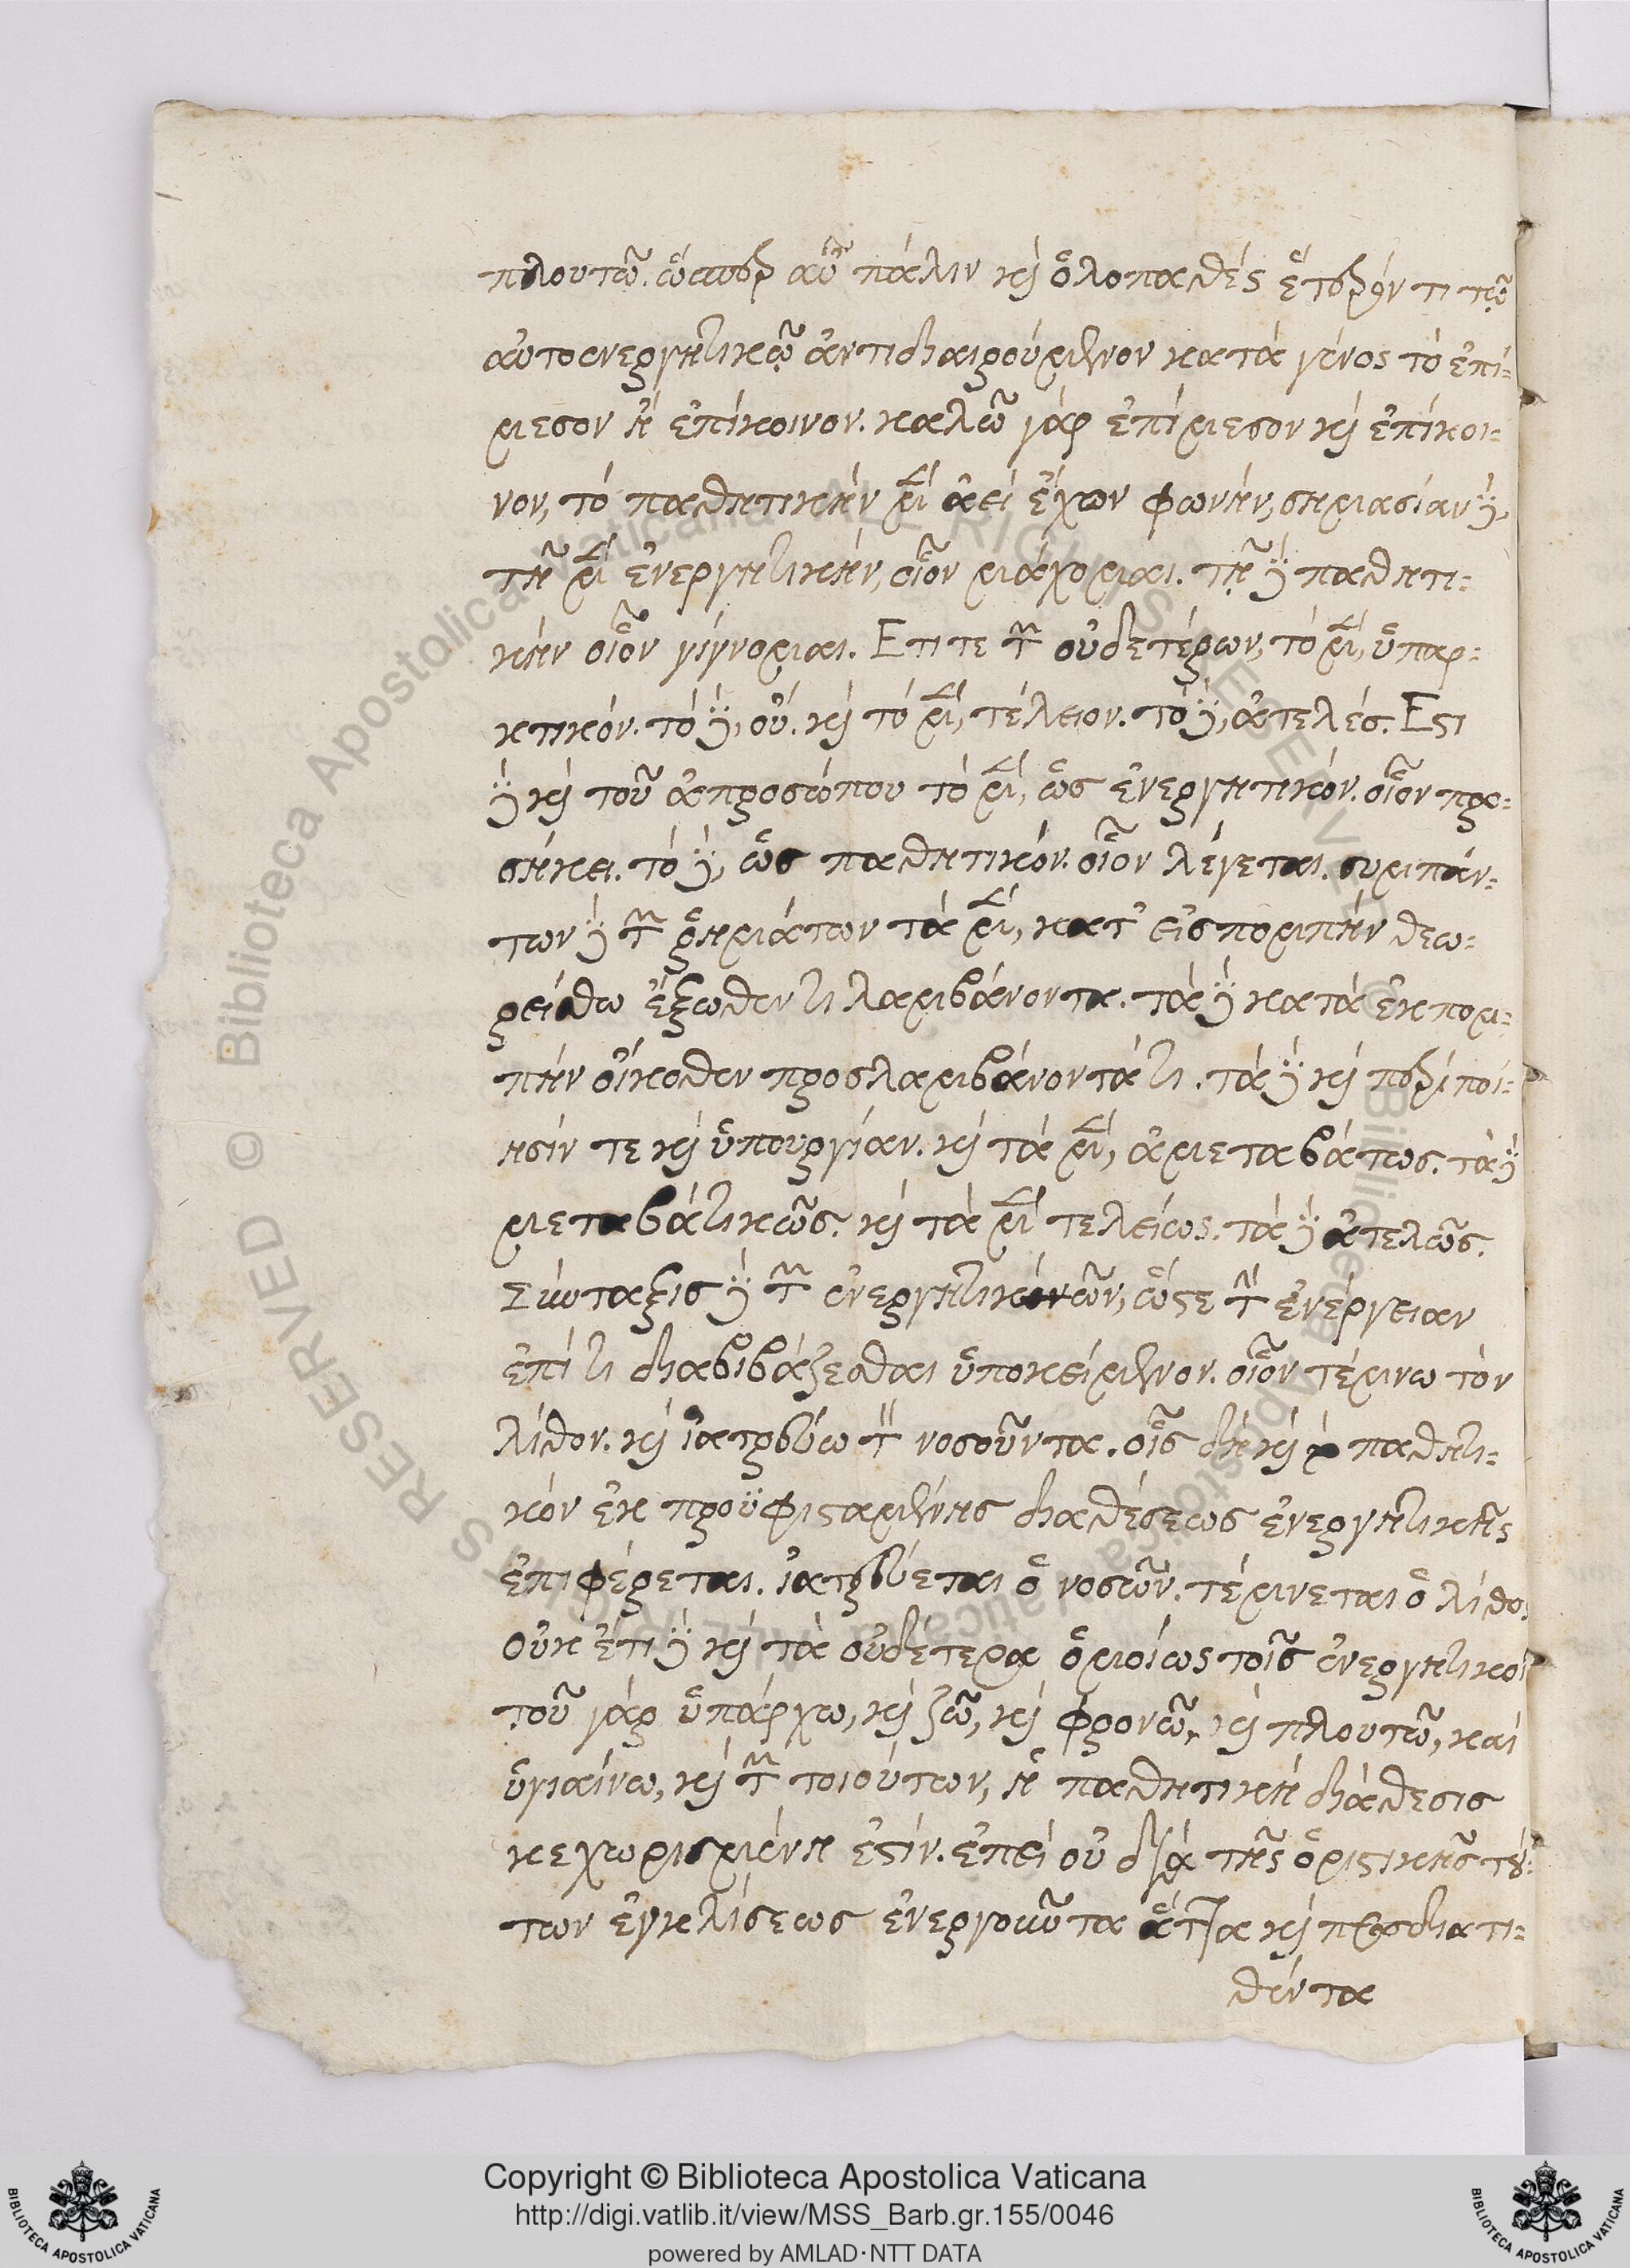 πλουτῶ. ὥσπερ αὖ πάλιν καὶ ὁλοπαθές ἕτερόν τι τῷ
αὐτοενεργητικῷ ἀντιδιαιρούμενον κατὰ γένος τὸ ἐπί-
μεσον ἢ ἐπίκοινον. καλῶ γὰρ ἐπίμεσον καὶ ἐπίκοι-
νον, τὸ παθητικὴν μὲν ἀεὶ ἔχον φωνήν, σημασίαν δὲ
τῇ μὲν ἐνεργητικήν, οἷον μάχομαι. τῇ δὲ παθητι-
κήν οἷον γίγνομαι. Ετι τε τῶν οὐδετέρων, τὸ μὲν, ὑπαρ-
κτικόν. τὸ δὲ, οὐ. καὶ τὸ μὲν, τέλειον. τὸ δὲ, ἀτελές. Εστι
δὲ καὶ τοῦ ἀπροσώπου τὸ μὲν, ὡς ἐνεργητικόν. οἷον προ-
σήκει. τὸ δὲ, ὡς παθητικόν. οἷον λέγεται. συμπάν-
των δὲ τῶν ῥημάτων τὰ μὲν, κατ' εἰσπομπὴν θεω-
ρείσθω ἔξωθεν τι λαμβάνοντα. τὰ δὲ κατὰ ἐκπομ-
πὴν οἴκοθεν προσλαμβάνοντά τι. τὰ δὲ καὶ περιποί-
ησίν τε καὶ ὑπουργίαν. καὶ τὰ μὲν, ἀμεταβάτως. τὰ δὲ
μεταβατικῶς. καὶ τὰ μὲν τελείως. τὰ δὲ ἀτελῶς.
Σύνταξις δὲ τῶν ἐνεργητικῶν, ὥστε τὴν ἐνέργειαν
ἐπί τι διαβιβάζεσθαι ὑποκείμενον. οἷον τέμνω τὸν
λίθον. καὶ ἰατρεύω τὸν νοσοῦντα. οἷς δὴ καὶ παθητι-
κὸν ἐκ προϋφισταμένης διαθέσεως ἐνεργητικῆς
ἐπιφέρεται. ἰατρεύεται ὁ νοσῶν. τέμνεται ὁ λίθος
Οὐκ ἔτι δὲ καὶ τὰ οὐδέτερα ὁμοίως τοῖς ἐνεργητικοῖς
τοῦ γὰρ ὑπάρχω, καὶ ζῶ, καὶ φρονῶ, καὶ πλουτῶ, καὶ
ὑγιαίνω, καὶ τῶν τοιούτων, ἡ παθητικὴ διάθεσις
κεχωρισμένη ἐστίν. ἐπεὶ οὐ διὰ τῆς ὁριστικῆς τού-
των ἐγκλίσεως ἐνεργοῦντα ἅττα καὶ προσδιατι-
θέντα
Copyright © Biblioteca Apostolica Vaticana
http://digi.vatlib.it/view/MSS_Barb.gr.155/0046
powered by AMLAD·NTT DATA